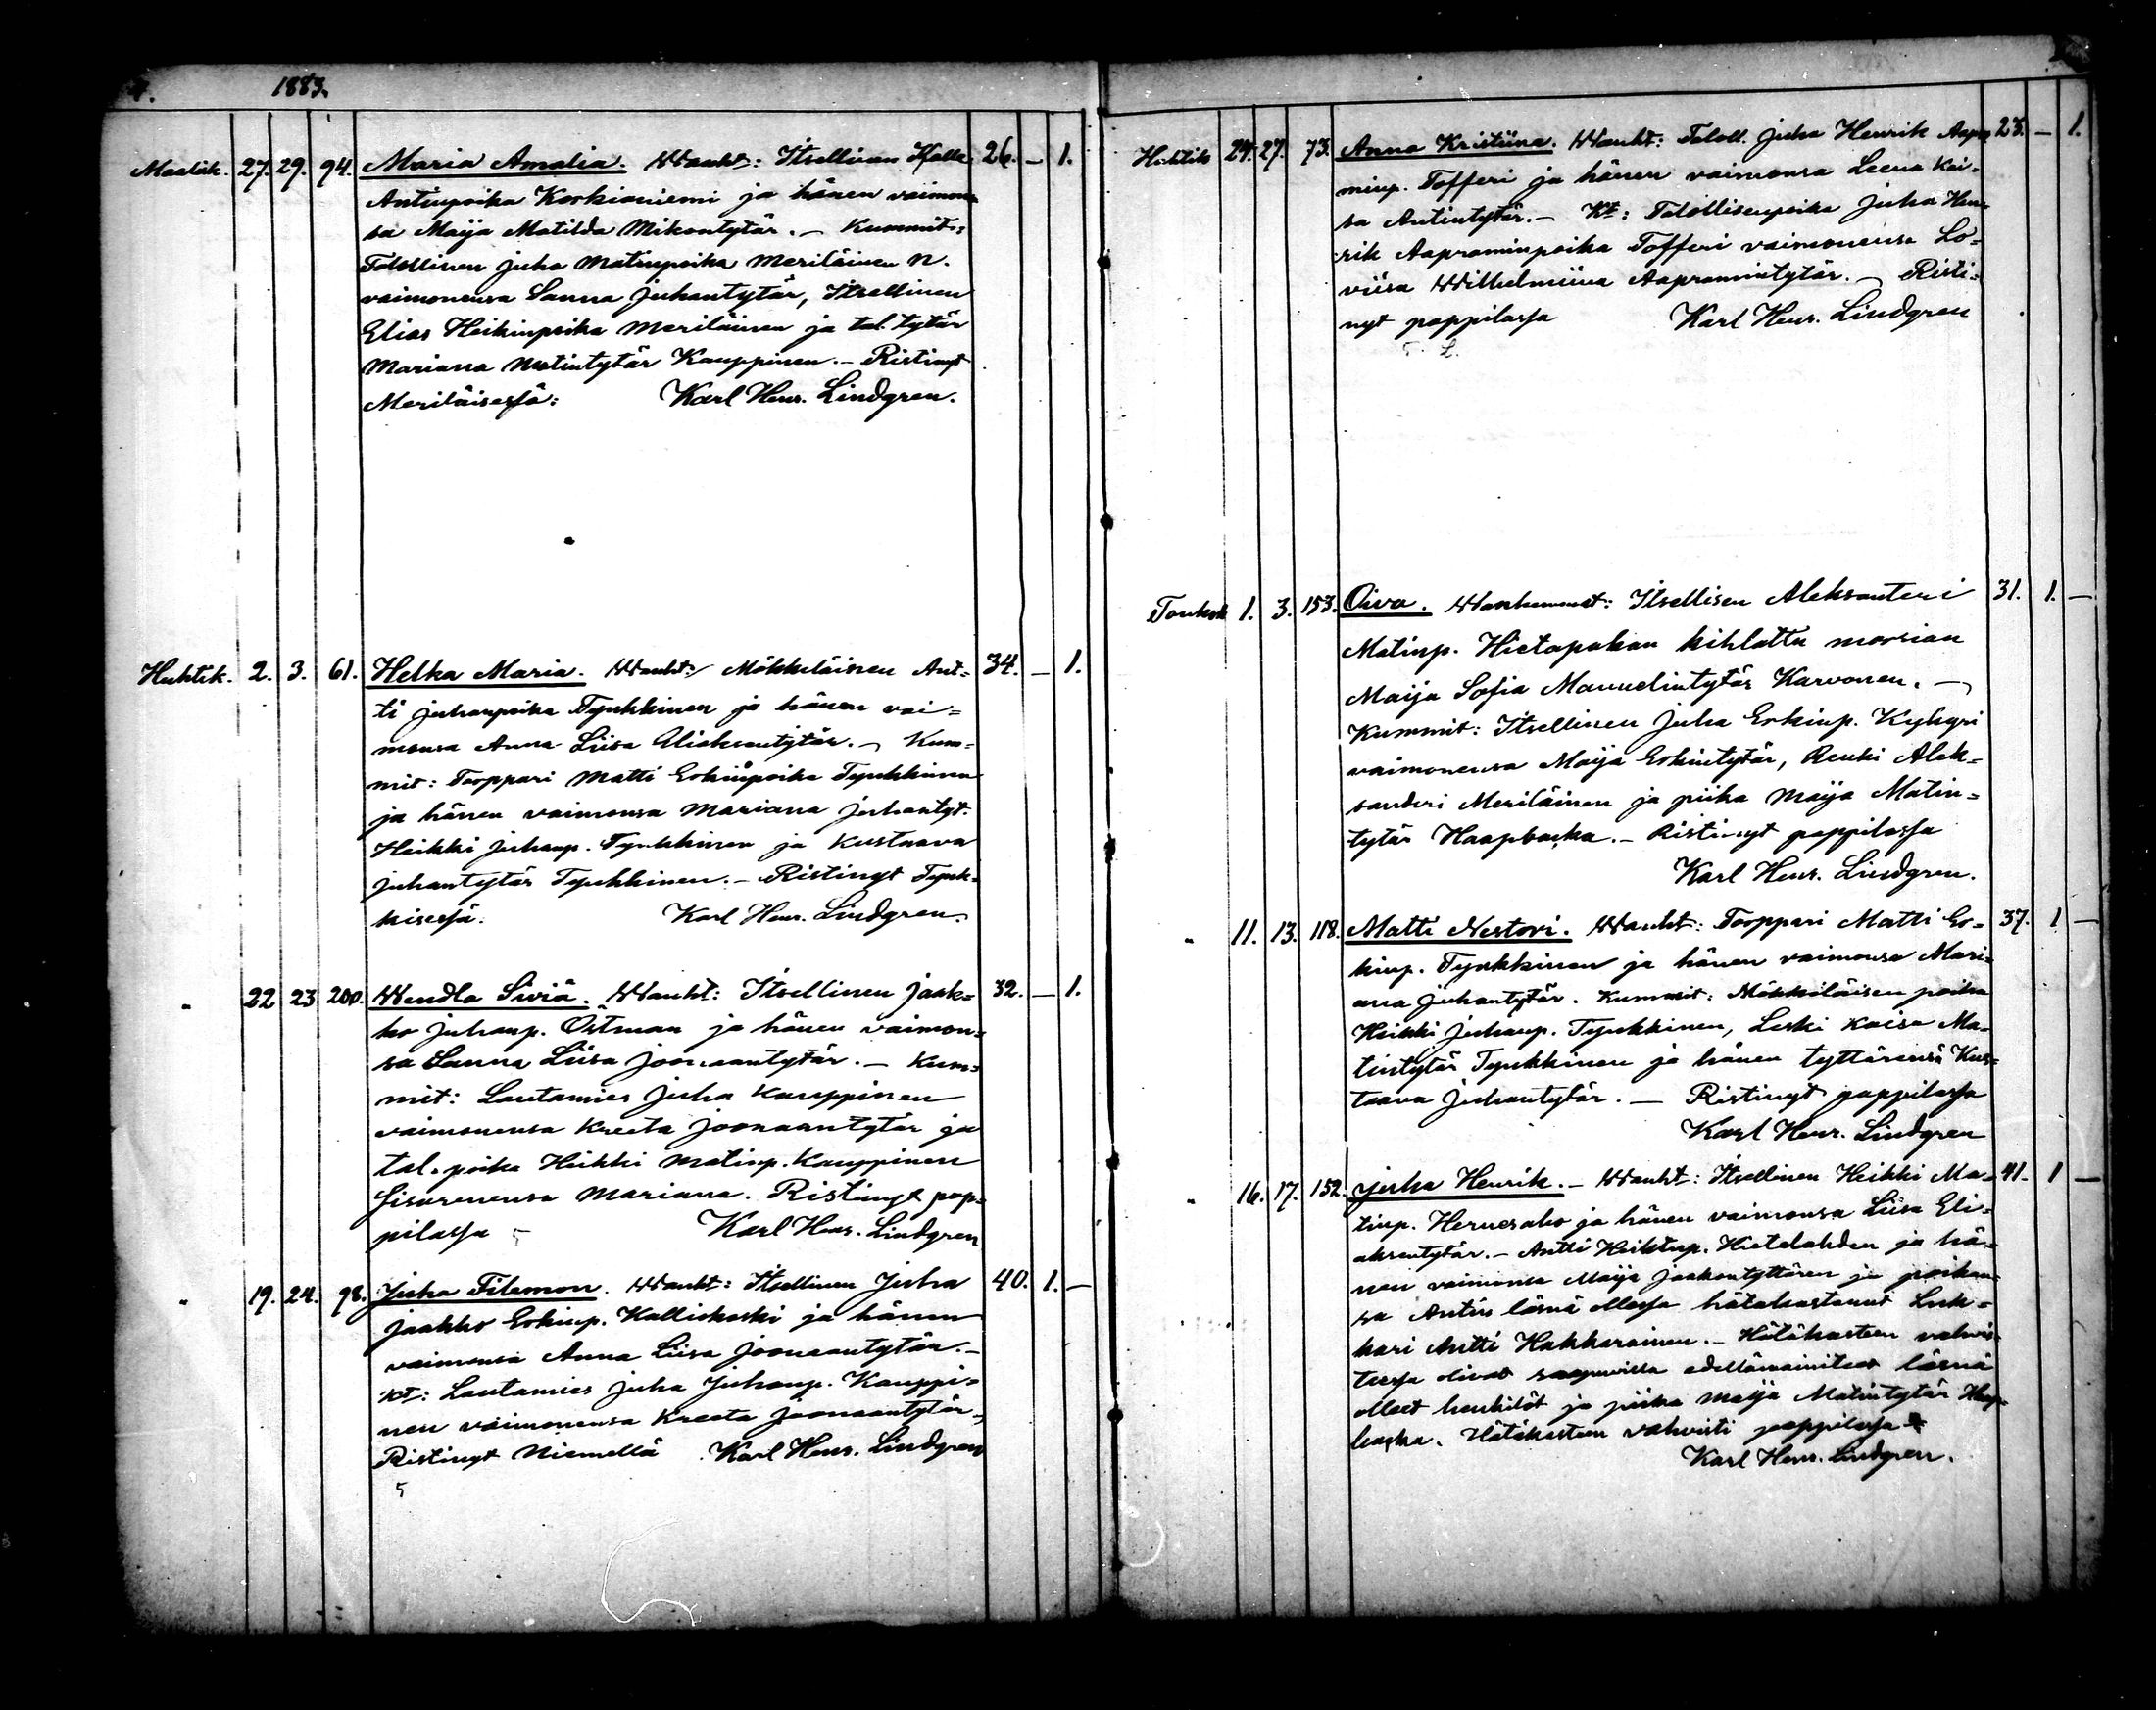 1883.
Maalisk. 27. 29. 94. Maria Amalia. Wanht: Itsellinen Kalle 26. — 1.
Antinpoika Korkianiemi ja hänen vaimon=
sa Maija Matilda Mikontytär. — Kummit:
Talollinen Juho Matinpoika Meriläinen N.
vaimonensa Sanna Juhantytär, Itsellinen
Elias Heikinpoika Meriläinen ja tal. tytär
Mariana Matintytär Kauppinen. — Ristinyt
Meriläisessä: Karl Henr. Lindgren.
Huhtik. 2. 3. 61. Helka Maria. Wanht: Mökkiläinen Ant= 34. — 1.
ti Juhanpoika Tynkkinen ja hänen vai=
monsa Anna Liisa Eliaksentytär. — Kum=
mit: Torppari Matti Erkinpoika Tynkkinen
ja hänen vaimonsa Mariana Juhantyt.
Heikki Juhanp. Tynkkinen ja Kustaava
Juhantytär Tynkkinen. — Ristinyt Tynk=
kisessä. Karl Henr. Lindgren.
" 22 23 200. Wendla Siviä. Wanht: Itsellinen Jaak= 32. — 1.
ko Juhanp. Östman ja hänen vaimon=
sa Sanna Liisa Joonaantytär. — Kum=
mit: Lautamies Juha Kauppinen
vaimonensa Kreeta Joonaantytär ja
tal. poika Heikki Matinp. Kauppinen
sisarenensa Mariana. Ristinyt pap=
pilassa Karl Henr. Lindgren
" 19. 24. 98. Juha Filemon. Wanht: Itsellinen Juha 40. 1. —
Jaakko Erkinp. Kalliokoski ja hänen
vaimonsa Anna Liisa Joonaantytär. —
Kt: Lautamies Juha Juhanp. Kauppi=
nen vaimonensa Kreeta Joonaantytär. —
Ristinyt Niemellä Karl Henr. Lindgren
5
Huhtik 24. 27. 73. Anna Kristiina. Wanht: Taloll. Juha Henrik Apra 23. — 1.
minp. Tofferi ja hänen vaimonsa Leena Kai=
sa Antintytär. — Kt: Talollisenpoika Juha Hen=
rik Aapraminpoika Tofferi vaimonensa Lo=
viisa Wilhelmiina Aapramintytär. — Risti=
nyt pappilassa Karl Henr. Lindgren
Toukok 1. 3. 153. Oiva. Wanhemmat: Itsellisen Aleksanteri 31. 1. —
Matinp. Hietapakan kihlattu morsian
Maija Sofia Manuelintytär Karvonen. —
Kummit: Itsellinen Juha Erkinp. Kyhyri
vaimonensa Maija Erkintytär, Renki Alek=
sanderi Meriläinen ja piika Maija Matin=
tytär Haapboska. — Ristinyt pappilassa
Karl Henr. Lindgren.
" 11. 13. 118. Matti Nestori. Wanht: Torppari Matti Er= 37. 1 —
kinp. Tynkkinen ja hänen vaimonsa Mari=
ana Juhantytär. Kummit: Mökkiläisen poika
Heikki Juhanp. Tynkkinen, Leski Kaisa Ma=
tintytär Tynkkinen ja hänen tyttärensä Kus=
taava Juhantytär. — Ristinyt pappilassa
Karl Henr. Lindgren
" 16. 17. 152. Juha Henrik. — Wanht: Itsellinen Heikki Ma= 41. 1 —
tinp. Hernesaho ja hänen vaimonsa Liisa Eli=
aksentytär. — Antti Heikinp. Hietalahden ja hä=
nen vaimonsa Maija Jaakontyttären ja poikan=
sa Antin läsnä ollessa hätäkastanut Luk=
kari Antti Hakkarainen. — Hätäkasteen vahvis=
teessa olivat saapuvilla edellämainitut läsnä
olleet henkilöt ja piika Maija Matintytär
Hätäkasteen vahvisti pappilassa
Karl Henr. Lindgren.